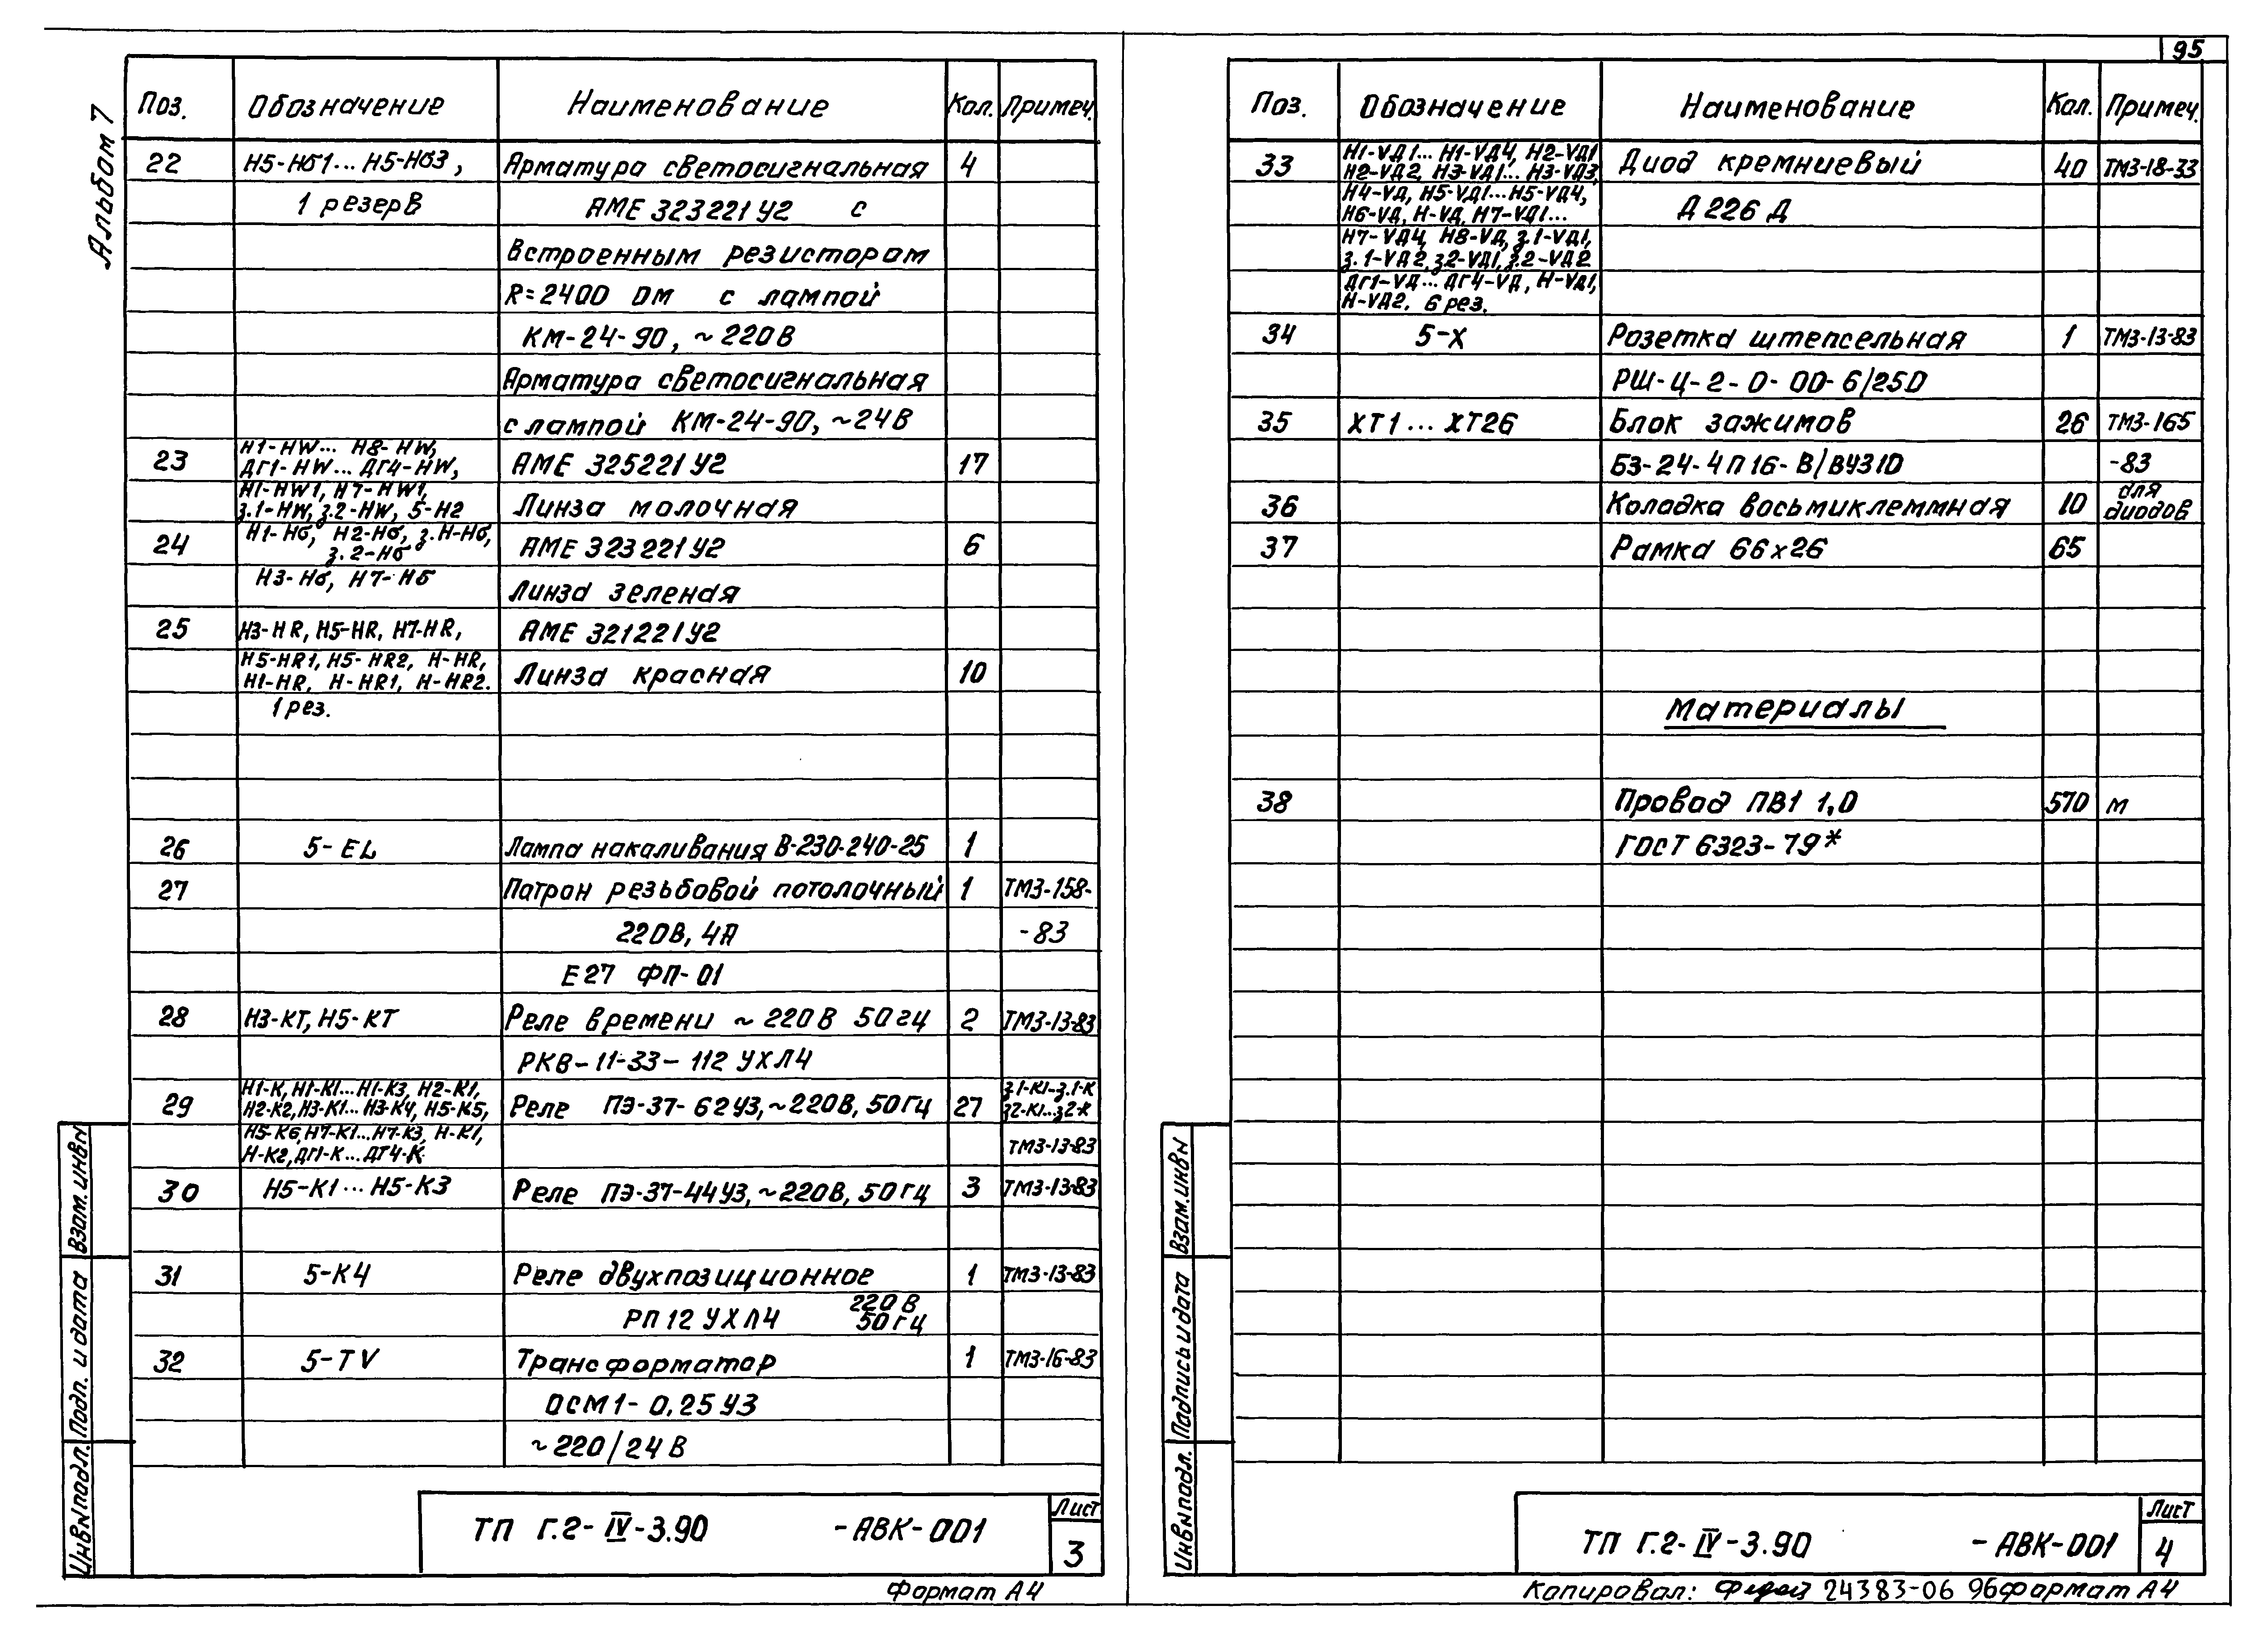 95
Альбом 7
Поз. Обозначение Наименование Кол. Примеч.
22 Н5-Нб1... Н5-Нб3, Арматура светосигнальная 4
1 резерв АМЕ 323221У2 с
встроенным резистором
R=2400 Ом с лампой
КМ-24-90, ~220В
Арматура светосигнальная
с лампой КМ-24-90, ~24В
Н1-НW... Н8-НW,
23 ДГ1-НW... ДГ4-НW, АМЕ 325221У2 17
Н1-НW1, Н7-НW1,
з.1-НW, з.2-НW, 5-Н2 Линза молочная
24 Н1-Нб, Н2-Нб, з.Н-Нб, АМЕ 323221У2 6
з.2-Нб
Н3-Нб, Н7-Нб Линза зеленая
25 Н3-НR, Н5-НR, Н7-НR, АМЕ 321221У2
Н5-НR1, Н5-НR2, Н-НR, Линза красная 10
Н1-НR, Н-НR1, Н-НR2.
1 рез.
26 5-ЕL Лампа накаливания В-230-240-25 1
27 Патрон резьбовой потолочный 1 ТМ3-158-
220В, 4А -83
Е27 ФП-01
28 Н3-КТ, Н5-КТ Реле времени ~220В 50гц 2 ТМ3-13-83
РКВ-11-33-112 УХЛ4
Н1-К, Н1-К1...Н1-К3, Н2-К1, з.1-К1-з.1-К
29 Н2-К2, Н3-К1... Н3-К4, Н5-К5, Реле ПЭ-37-62У3, ~220В, 50Гц 27 з2-К1...з2-К
Н5-К6, Н7-К1...Н7-К3, Н-К1, ТМ3-13-83
Н-К2, ДГ1-К...ДГ4-К
30 Н5-К1...Н5-К3 Реле ПЭ-37-44У3, ~220В, 50Гц 3 ТМ3-13-83
31 5-К4 Реле двухпозиционное 1 ТМ3-13-83
РП12 УХЛ4 220В
50гц
32 5-ТV Трансформатор 1 ТМ3-16-83
ОСМ1-0,25У3
~220/24В
Взам.инвN
Подп. и дата
ИнвNподл.
ТП Г.2-IV-3.90 -АВК-001 Лист
3
Формат А4
Поз. Обозначение Наименование Кол. Примеч.
Н1-VД1... Н1-VД4, Н2-VД1
33 Н2-VД2, Н3-VД1... Н3-VД3, Диод кремниевый 40 ТМ3-18-33
Н4-VД, Н5-VД1...Н5-VД4,
Н6-VД, Н-VД, Н7-VД1... Д226Д
Н7-VД4, Н8-VД, з.1-VД1,
з.1-VД2, з2-VД1, з.2-VД2
ДГ1-VД... ДГ4-VД, Н-VД1,
Н-VД2. 6 рез.
34 5-Х Розетка штепсельная 1 ТМ3-13-83
РШ-Ц-2-0-00-6/250
35 ХТ1...ХТ26 Блок зажимов 26 ТМ3-165
БЗ-24-4П16-В/ВУ310 -83
36 Коладка восьмиклеммная 10 для
диодов
37 Рамка 66х26 65
Материалы
38 Провод ПВ1 1,0 570 м
ГОСТ 6323-79*
Взам.инвN
Падпись и дата
ИнвNподл.
ТП Г.2-IV-3.90 -АВК-001 Лист
4
Копировал: 24383-06 96 Формат А4